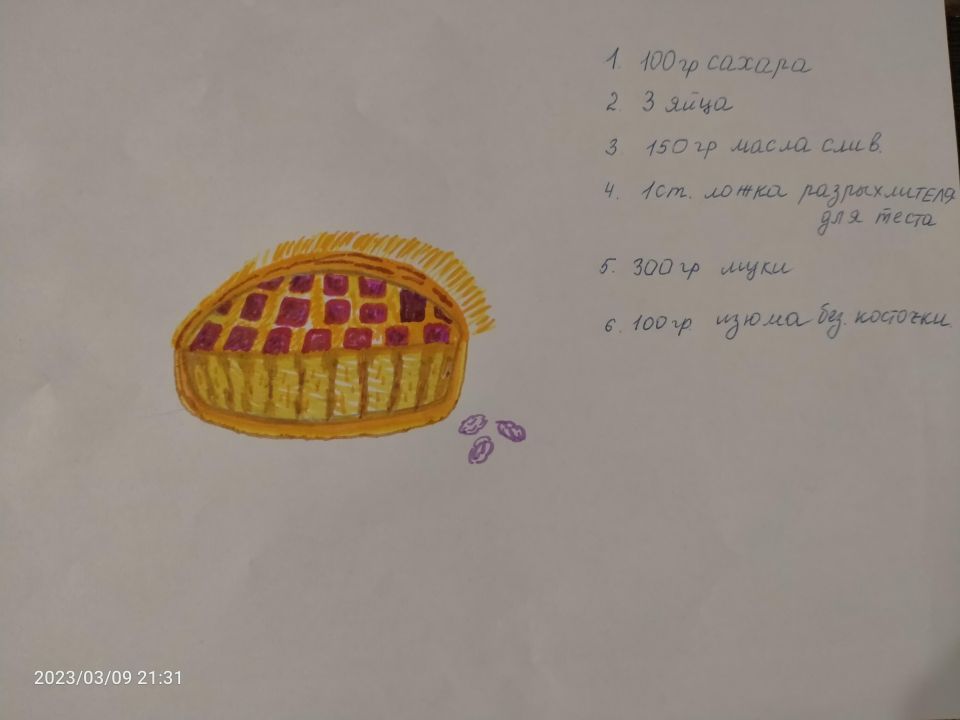 1. 100гр сахара
2. 3 яйца
3. 150гр масла слив.
4. 1ст. ложка разрыхлителя
для теста
5. 300гр муки
6. 100гр. изюма без. косточки.
2023/03/09 21:31